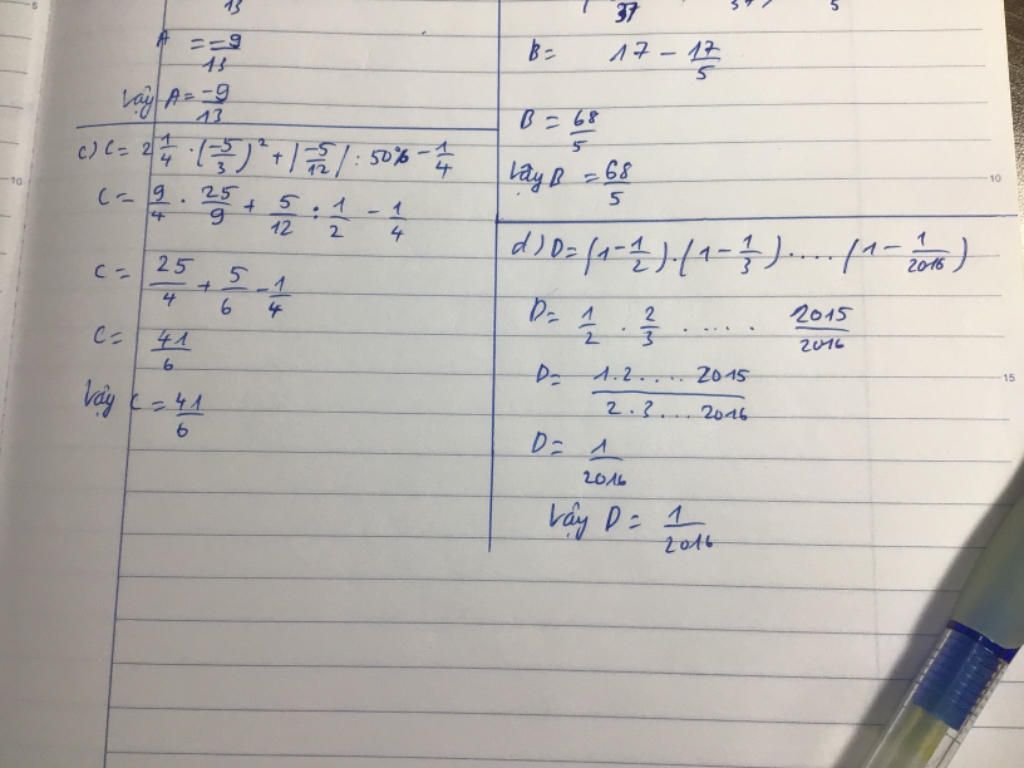 13
A = -9/13
Vậy A = -9/13
c) C = 2 1/4 . (-5/3)² + |-5/12| : 50% - 1/4
C = 9/4 . 25/9 + 5/12 : 1/2 - 1/4
C = 25/4 + 5/6 - 1/4
C = 41/6
Vậy C = 41/6
37 37 5
B = 17 - 17/5
B = 68/5
Vậy B = 68/5
d) D = (1 - 1/2) . (1 - 1/3) ..... (1 - 1/2016)
D = 1/2 . 2/3 ..... 2015/2016
D = 1.2....2015 / 2.3...2016
D = 1/2016
Vậy D = 1/2016
10
10
15